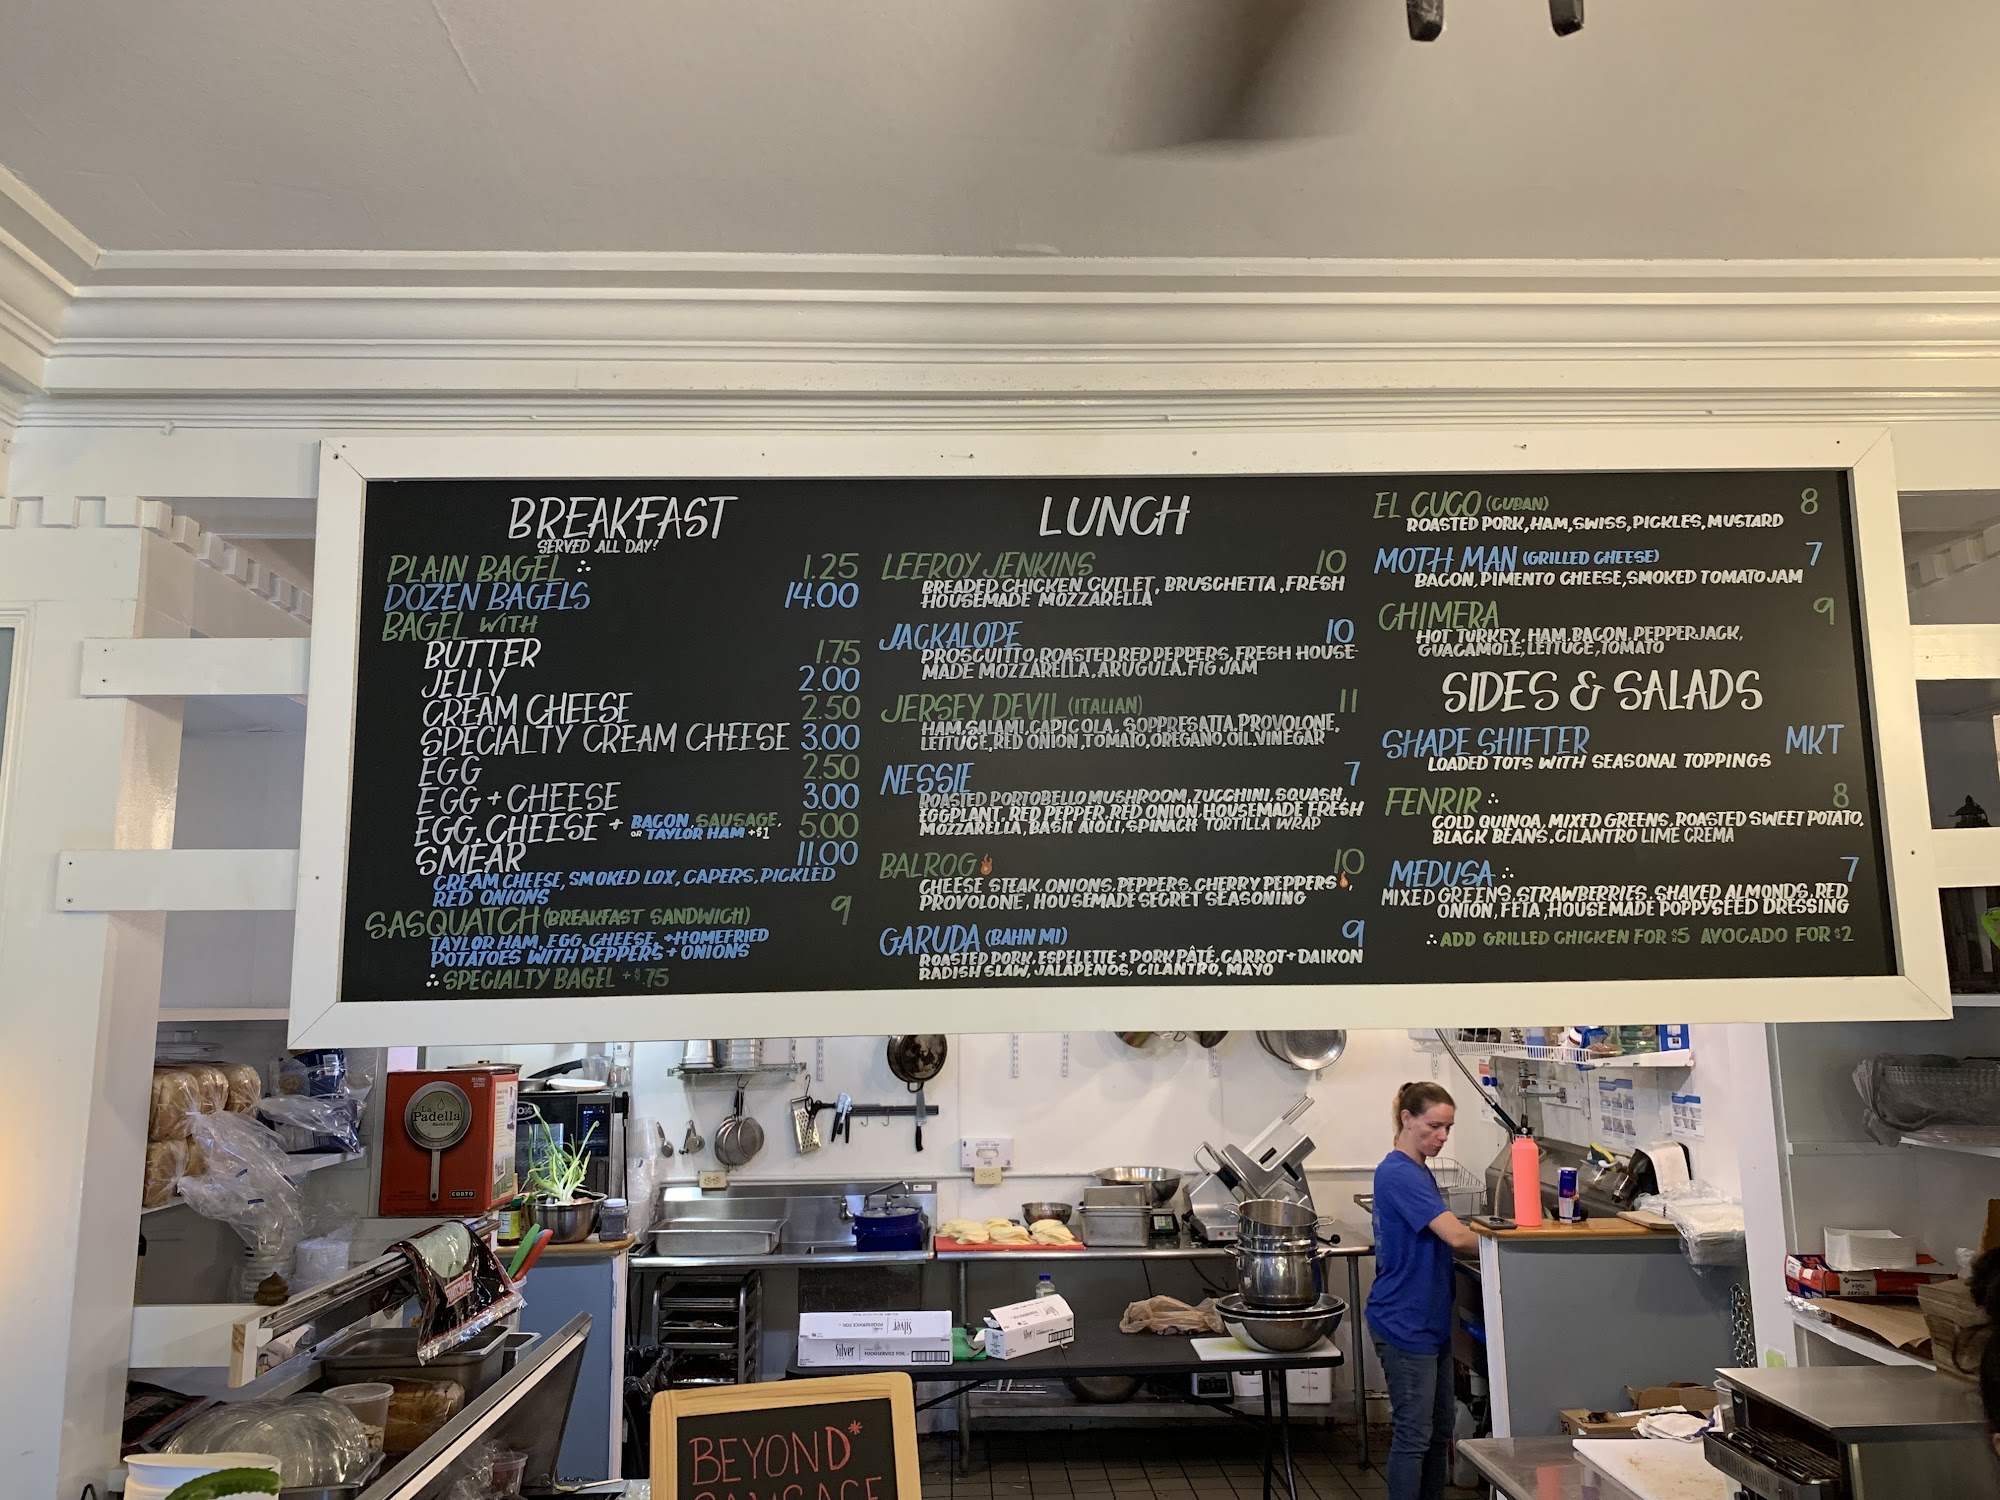 BREAKFAST
SERVED ALL DAY!
PLAIN BAGEL 1.25
DOZEN BAGELS 14.00
BAGEL WITH
BUTTER 1.75
JELLY 2.00
CREAM CHEESE 2.50
SPECIALTY CREAM CHEESE 3.00
EGG 2.50
EGG + CHEESE 3.00
EGG, CHEESE + BACON, SAUSAGE, OR TAYLOR HAM +$1 5.00
SMEAR 11.00
CREAM CHEESE, SMOKED LOX, CAPERS, PICKLED
RED ONIONS
SASQUATCH (BREAKFAST SANDWICH) 9
TAYLOR HAM, EGG, CHEESE, +HOMEFRIED
POTATOES WITH PEPPERS + ONIONS
SPECIALTY BAGEL +$.75
LUNCH
LEEROY JENKINS 10
BREADED CHICKEN CUTLET, BRUSCHETTA, FRESH
HOUSEMADE MOZZARELLA
JACKALOPE 10
PROSCUITTO, ROASTED RED PEPPERS, FRESH HOUSE-
MADE MOZZARELLA, ARUGULA, FIG JAM
JERSEY DEVIL (ITALIAN) 11
HAM, SALAMI, CAPICOLA, SOPPRESATTA, PROVOLONE,
LETTUCE, RED ONION, TOMATO, OREGANO, OIL, VINEGAR
NESSIE 7
ROASTED PORTOBELLO MUSHROOM, ZUCCHINI, SQUASH,
EGGPLANT, RED PEPPER, RED ONION, HOUSEMADE FRESH
MOZZARELLA, BASIL AIOLI, SPINACH TORTILLA WRAP
BALROG 10
CHEESE STEAK, ONIONS, PEPPERS, CHERRY PEPPERS,
PROVOLONE, HOUSEMADE SECRET SEASONING
GARUDA (BAHN MI) 9
ROASTED PORK, ESPELETTE + PORK PÂTÉ, CARROT + DAIKON
RADISH SLAW, JALAPENOS, CILANTRO, MAYO
EL CUCO (CUBAN) 8
ROASTED PORK, HAM, SWISS, PICKLES, MUSTARD
MOTH MAN (GRILLED CHEESE) 7
BACON, PIMENTO CHEESE, SMOKED TOMATO JAM
CHIMERA 9
HOT TURKEY, HAM, BACON, PEPPERJACK,
GUACAMOLE, LETTUCE, TOMATO
SIDES & SALADS
SHAPE SHIFTER MKT
LOADED TOTS WITH SEASONAL TOPPINGS
FENRIR 8
COLD QUINOA, MIXED GREENS, ROASTED SWEET POTATO,
BLACK BEANS, CILANTRO LIME CREMA
MEDUSA 7
MIXED GREENS, STRAWBERRIES, SHAVED ALMONDS, RED
ONION, FETA, HOUSEMADE POPPYSEED DRESSING
ADD GRILLED CHICKEN FOR $5 AVOCADO FOR $2
La Padella
CORTO
Silver
FOODSERVICE FOIL
Silver
FOODSERVICE FOIL
Silver
BEYOND*
SAUSAGE